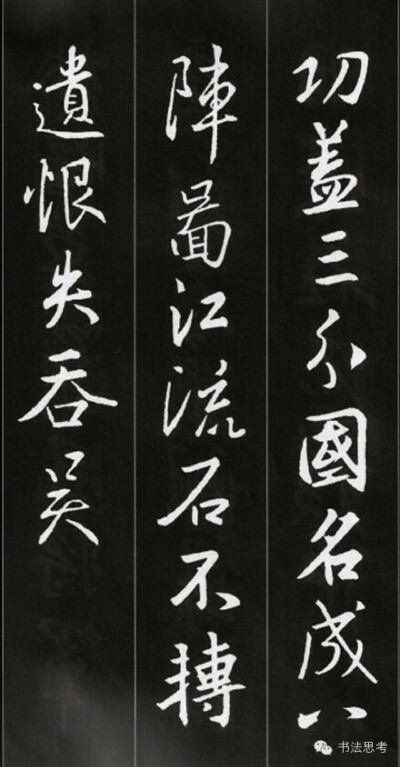 功盖三分國名成八
陣啚江流石不摶
遺恨失吞吴
书法思考